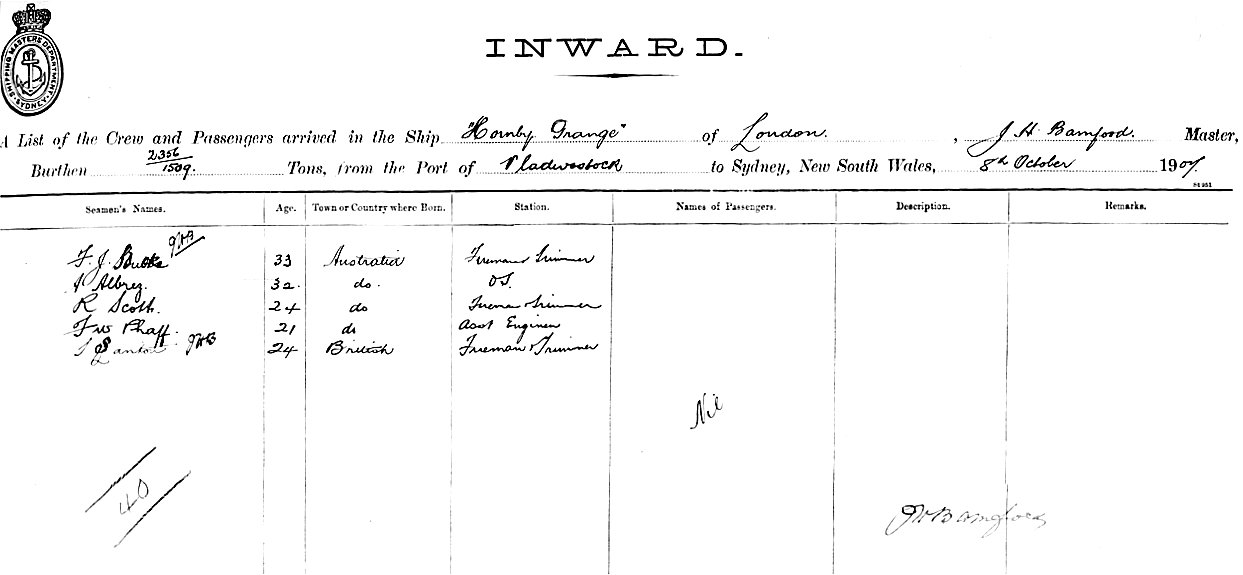 SHIPPING MASTERS DEPARTMENT
SYDNEY
INWARD.
A List of the Crew and Passengers arrived in the Ship "Hornby Grange" of London. , J. H. Bamford. Master,
Burthen 2356/1509. Tons, from the Port of Vladivostock to Sydney, New South Wales, 8th October 1907.
Seamen's Names. Age. Town or Country where Born. Station. Names of Passengers. Description. Remarks.
JHB
F. J. 33 Australia Fireman Trimmer
Albrey. 32. do. OS.
R Scott. 24 do Fireman Trimmer
F W Phaff. 21 do Asst Engineer
JHB 24 British Fireman & Trimmer
Nil
40
JHBamford